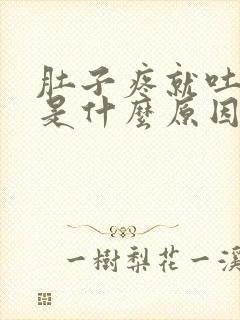 肚子疼就吐
是什麼原因
一樹梨花一溪